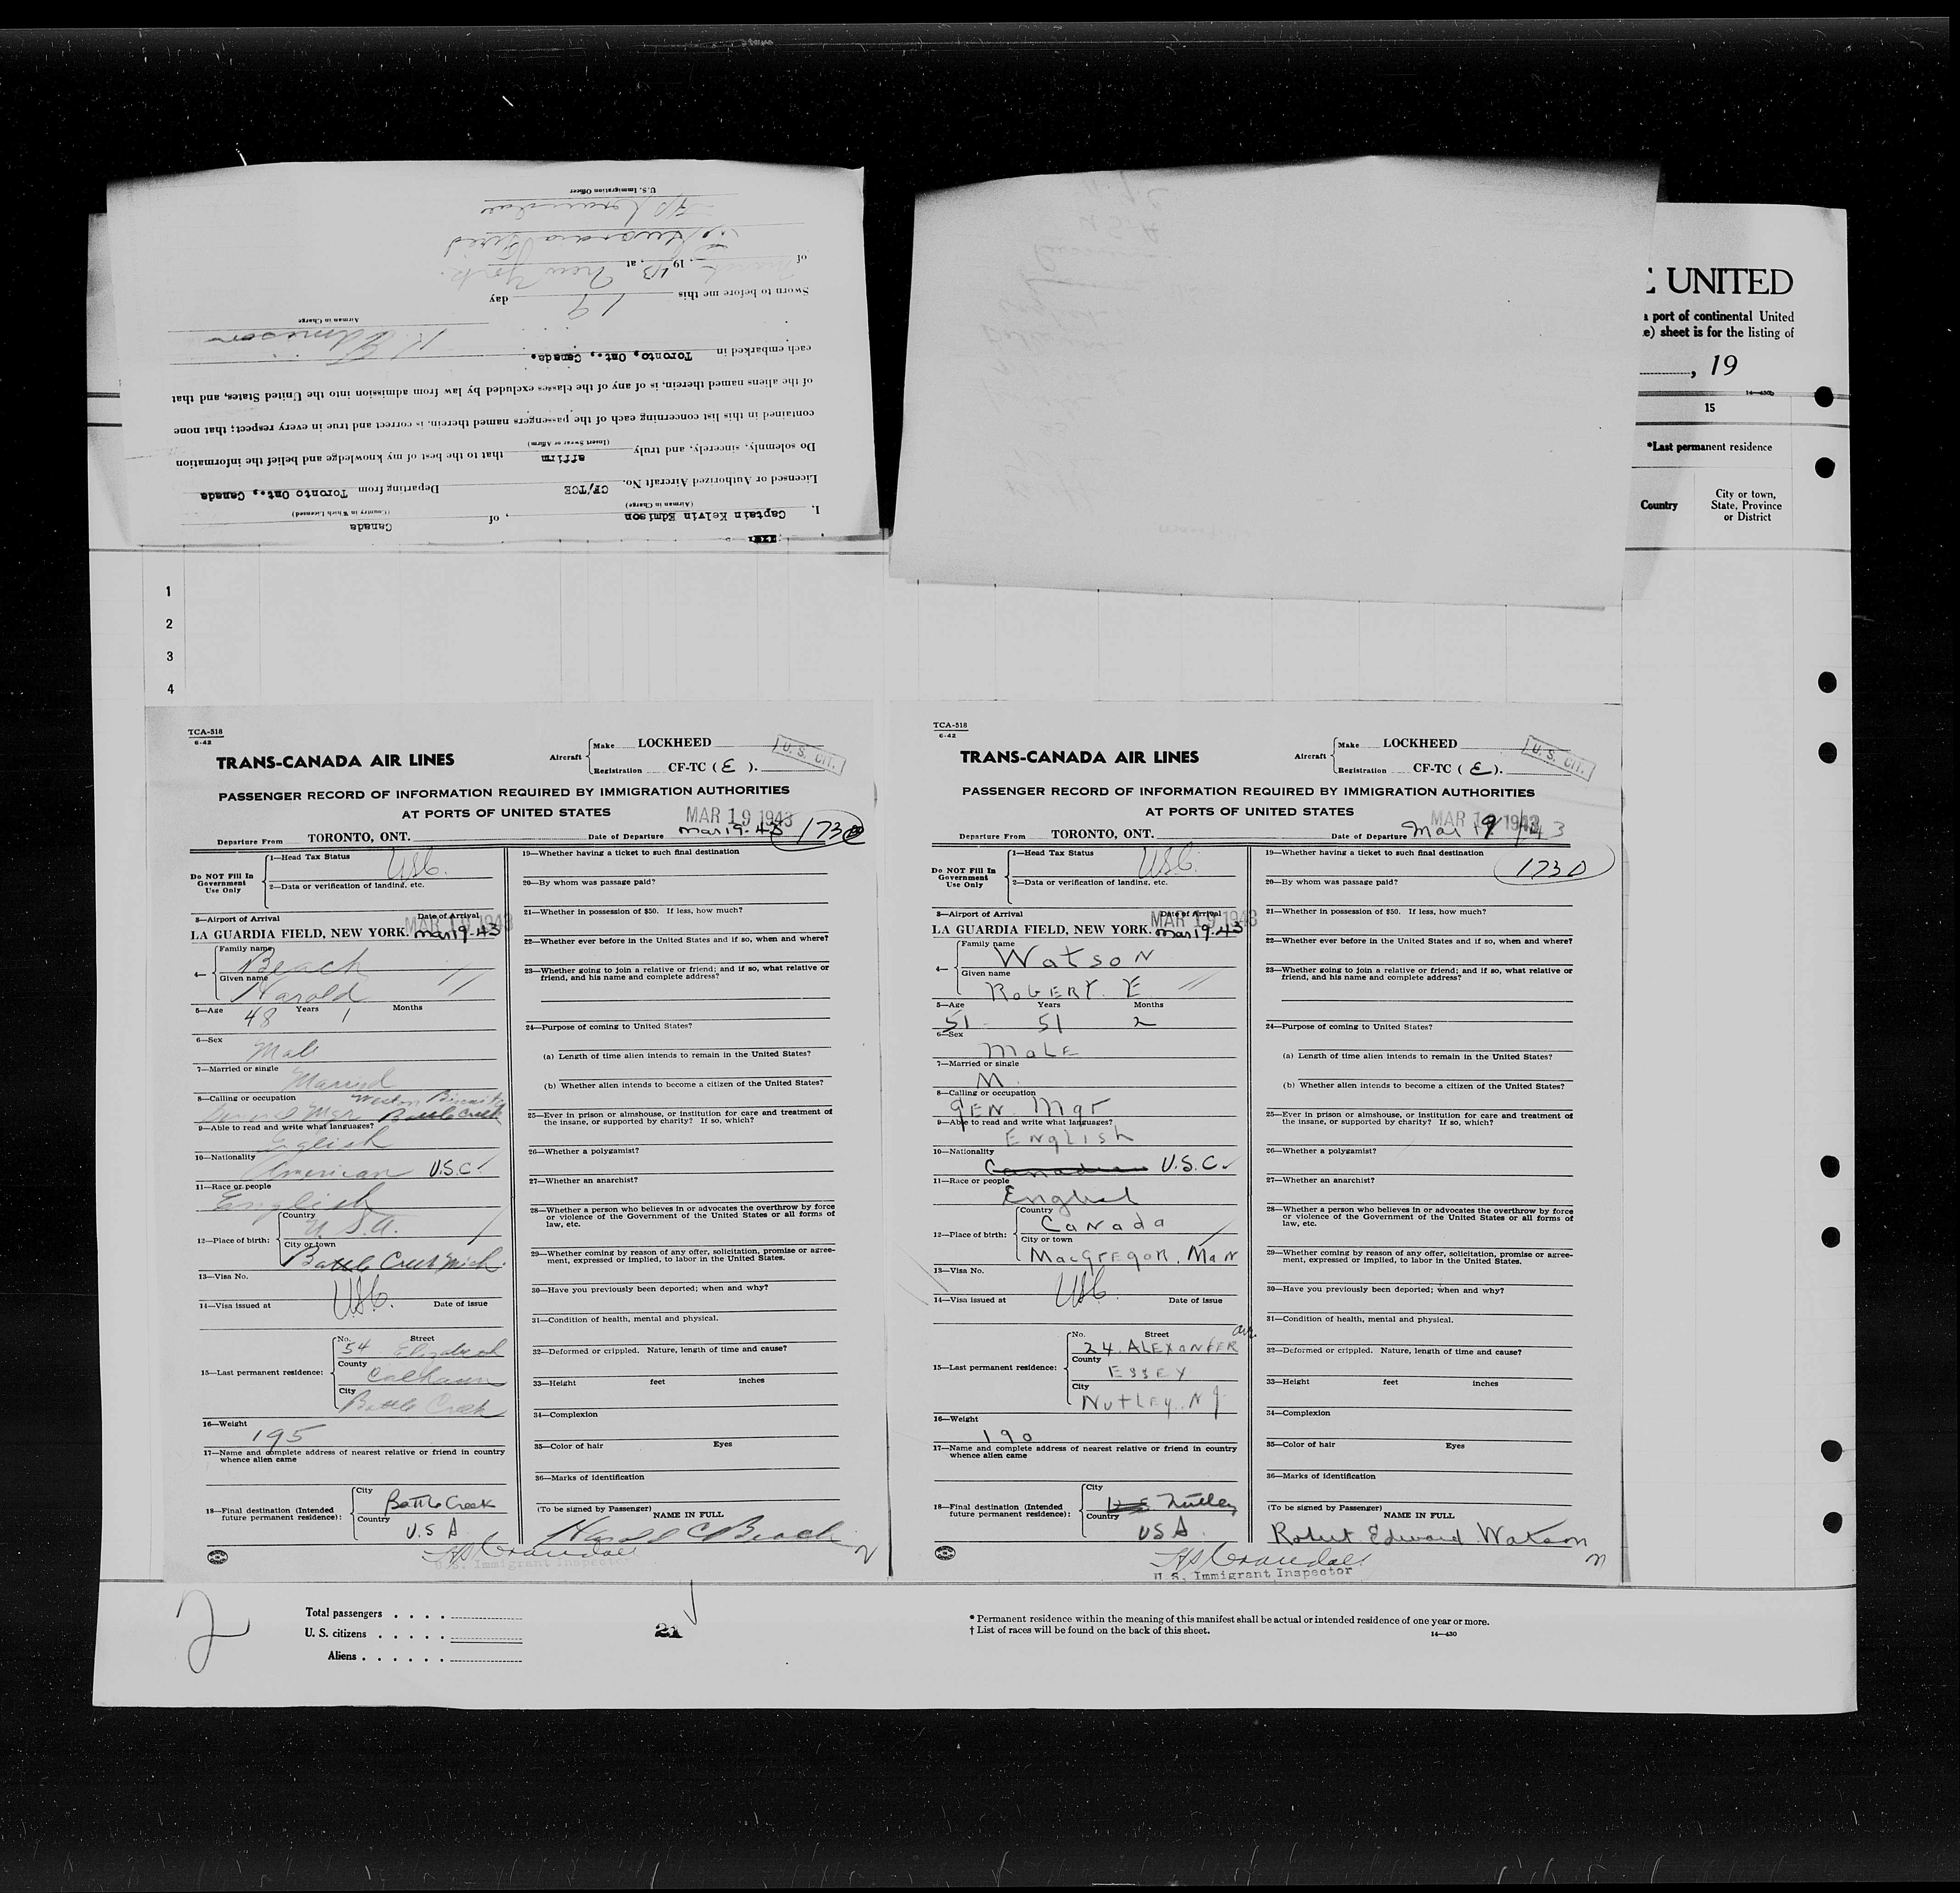 U.S. Immigration Officer
of March, 1943, at New York.
Sworn to before me this 19 day
Airman in Charge
K Edmison
each embarked in Toronto, Ont., Canada.
of the aliens named therein, is of any of the classes excluded by law from admission into the United States, and that
contained in this list concerning each of the passengers named therein, is correct and true in every respect; that none
Do solemnly, sincerely, and truly affirm that to the best of my knowledge and belief the information
(Insert Swear or Affirm)
Licensed or Authorized Aircraft No. CF/TCE Departing from Toronto Ont., Canada
(Airman in Charge) (Country in Which Licensed)
I, Captain Kelvin Edmison, of Canada
E UNITED
a port of continental United
e) sheet is for the listing of
, 19
14—430b
15
*Last permanent residence
Country
City or town,
State, Province
or District
1
2
3
4
TCA-518
6-42
TRANS-CANADA AIR LINES
Aircraft Make LOCKHEED
Registration CF-TC ( E ).
U. S. CIT.
PASSENGER RECORD OF INFORMATION REQUIRED BY IMMIGRATION AUTHORITIES
AT PORTS OF UNITED STATES
MAR 19 1943
Departure From TORONTO, ONT. Date of Departure Mar 19-43 1730
Do NOT Fill In
Government
Use Only
1—Head Tax Status USC.
2—Data or verification of landing, etc.
3—Airport of Arrival Date of Arrival
MAR 19 1943
LA GUARDIA FIELD, NEW YORK. Mar 19-43
4— Family name Beach
Given name Harold
5—Age 48 Years 1 Months
6—Sex Male
7—Married or single Married
8—Calling or occupation Weston Biscuits
General Mgr. Battle Creek
9—Able to read and write what languages?
English
10—Nationality American U.S.C.
11—Race or people English
12—Place of birth: Country U.S.A.
City or town Battle Creek Mich.
13—Visa No.
USC.
14—Visa issued at Date of issue
15—Last permanent residence: No. 54 Street Elizabeth
County Calhoun
City Battle Creek
16—Weight 195
17—Name and complete address of nearest relative or friend in country
whence alien came
18—Final destination (Intended
future permanent residence): City Battle Creek
Country U.S A
19—Whether having a ticket to such final destination
20—By whom was passage paid?
21—Whether in possession of $50. If less, how much?
22—Whether ever before in the United States and if so, when and where?
23—Whether going to join a relative or friend; and if so, what relative or
friend, and his name and complete address?
24—Purpose of coming to United States?
(a) Length of time alien intends to remain in the United States?
(b) Whether alien intends to become a citizen of the United States?
25—Ever in prison or almshouse, or institution for care and treatment of
the insane, or supported by charity? If so, which?
26—Whether a polygamist?
27—Whether an anarchist?
28—Whether a person who believes in or advocates the overthrow by force
or violence of the Government of the United States or all forms of
law, etc.
29—Whether coming by reason of any offer, solicitation, promise or agree-
ment, expressed or implied, to labor in the United States.
30—Have you previously been deported; when and why?
31—Condition of health, mental and physical.
32—Deformed or crippled. Nature, length of time and cause?
33—Height feet inches
34—Complexion
35—Color of hair Eyes
36—Marks of identification
(To be signed by Passenger)
NAME IN FULL
Harold C Beach
HS Crandall
U.S. Immigrant Inspector
TCA-518
6-42
TRANS-CANADA AIR LINES
Aircraft Make LOCKHEED
Registration CF-TC ( E ).
U. S. CIT.
PASSENGER RECORD OF INFORMATION REQUIRED BY IMMIGRATION AUTHORITIES
AT PORTS OF UNITED STATES
MAR 19 1943
Departure From TORONTO, ONT. Date of Departure Mar 19/43
Do NOT Fill In
Government
Use Only
1—Head Tax Status USC.
2—Data or verification of landing, etc.
3—Airport of Arrival Date of Arrival
MAR 19 1943
LA GUARDIA FIELD, NEW YORK. Mar 19-43
4— Family name Watson
Given name Robert. E
5—Age Years Months
51 51 2
6—Sex Male
7—Married or single M.
8—Calling or occupation
Gen. Mgr
9—Able to read and write what languages?
English
10—Nationality Canadian U.S.C.
11—Race or people English
12—Place of birth: Country Canada
City or town MacGregor, Man
13—Visa No.
USC.
14—Visa issued at Date of issue
15—Last permanent residence: No. 24. Street Alexander Ave.
County Essex
City Nutley. N J
16—Weight 190
17—Name and complete address of nearest relative or friend in country
whence alien came
18—Final destination (Intended
future permanent residence): City Nutley
Country USA.
19—Whether having a ticket to such final destination
1730
20—By whom was passage paid?
21—Whether in possession of $50. If less, how much?
22—Whether ever before in the United States and if so, when and where?
23—Whether going to join a relative or friend; and if so, what relative or
friend, and his name and complete address?
24—Purpose of coming to United States?
(a) Length of time alien intends to remain in the United States?
(b) Whether alien intends to become a citizen of the United States?
25—Ever in prison or almshouse, or institution for care and treatment of
the insane, or supported by charity? If so, which?
26—Whether a polygamist?
27—Whether an anarchist?
28—Whether a person who believes in or advocates the overthrow by force
or violence of the Government of the United States or all forms of
law, etc.
29—Whether coming by reason of any offer, solicitation, promise or agree-
ment, expressed or implied, to labor in the United States.
30—Have you previously been deported; when and why?
31—Condition of health, mental and physical.
32—Deformed or crippled. Nature, length of time and cause?
33—Height feet inches
34—Complexion
35—Color of hair Eyes
36—Marks of identification
(To be signed by Passenger)
NAME IN FULL
Robert Edward Watson
HS Crandall
U.S. Immigrant Inspector
2
Total passengers . . . .
U. S. citizens . . . . .
Aliens . . . . . .
21
* Permanent residence within the meaning of this manifest shall be actual or intended residence of one year or more.
† List of races will be found on the back of this sheet.
14—430